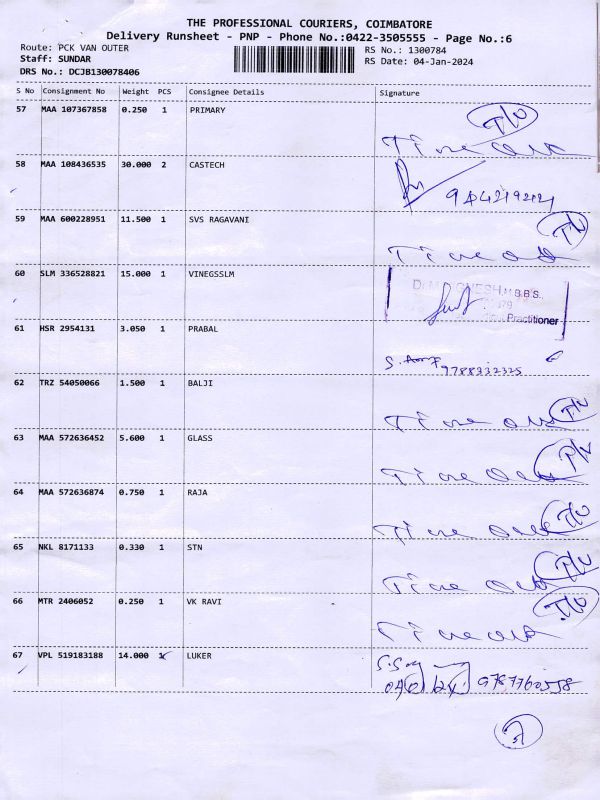 THE PROFESSIONAL COURIERS, COIMBATORE
Delivery Runsheet - PNP - Phone No.:0422-3505555 - Page No.:6
Route: PCK VAN OUTER RS No.: 1300784
Staff: SUNDAR RS Date: 04-Jan-2024
DRS No.: DCJB130078406
S No Consignment No Weight PCS Consignee Details Signature
57 MAA 107367858 0.250 1 PRIMARY T/O
Time out
58 MAA 108436535 30.000 2 CASTECH
59 MAA 600228951 11.500 1 SVS RAGAVANI
Time out
60 SLM 336528821 15.000 1 VINEGSSLM
M.B.B.S.,
Practitioner
61 HSR 2954131 3.050 1 PRABAL
62 TRZ 54050066 1.500 1 BALJI
Time out T/O
63 MAA 572636452 5.600 1 GLASS
Time out T/O
64 MAA 572636874 0.750 1 RAJA
Time out T/O
65 NKL 8171133 0.330 1 STN
Time out T/O
66 MTR 2406052 0.250 1 VK RAVI T/O
Time out
67 VPL 519183188 14.000 1 LUKER